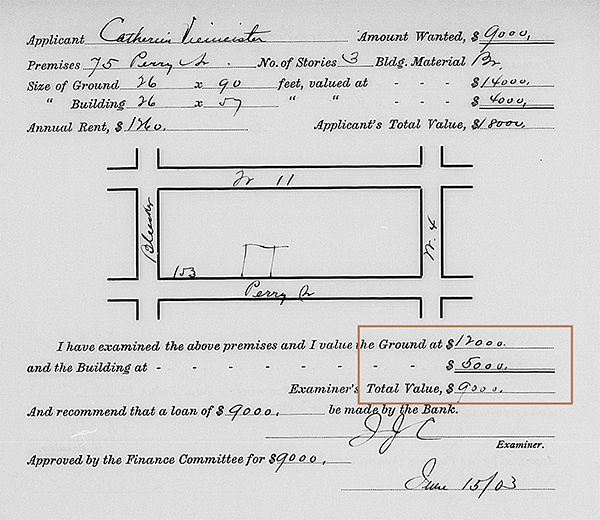 Applicant Catherine Viemeister Amount Wanted, $ 9000.
Premises 75 Perry St. No. of Stories 3 Bldg. Material Br.
Size of Ground 26 x 90 feet, valued at - - - $ 14000.
" Building 26 x 57 " " - - - $ 4000,
Annual Rent, $ 1260. Applicant's Total Value, $ 18000.
W 11
Bleecker
W. 4
153
Perry St
I have examined the above premises and I value the Ground at $ 12000.
and the Building at - - - - - - - - - $ 5000.
Examiner's Total Value, $ 9000.
And recommend that a loan of $ 9000. be made by the Bank.
JJC
Examiner.
Approved by the Finance Committee for $ 9000.
June 15/03